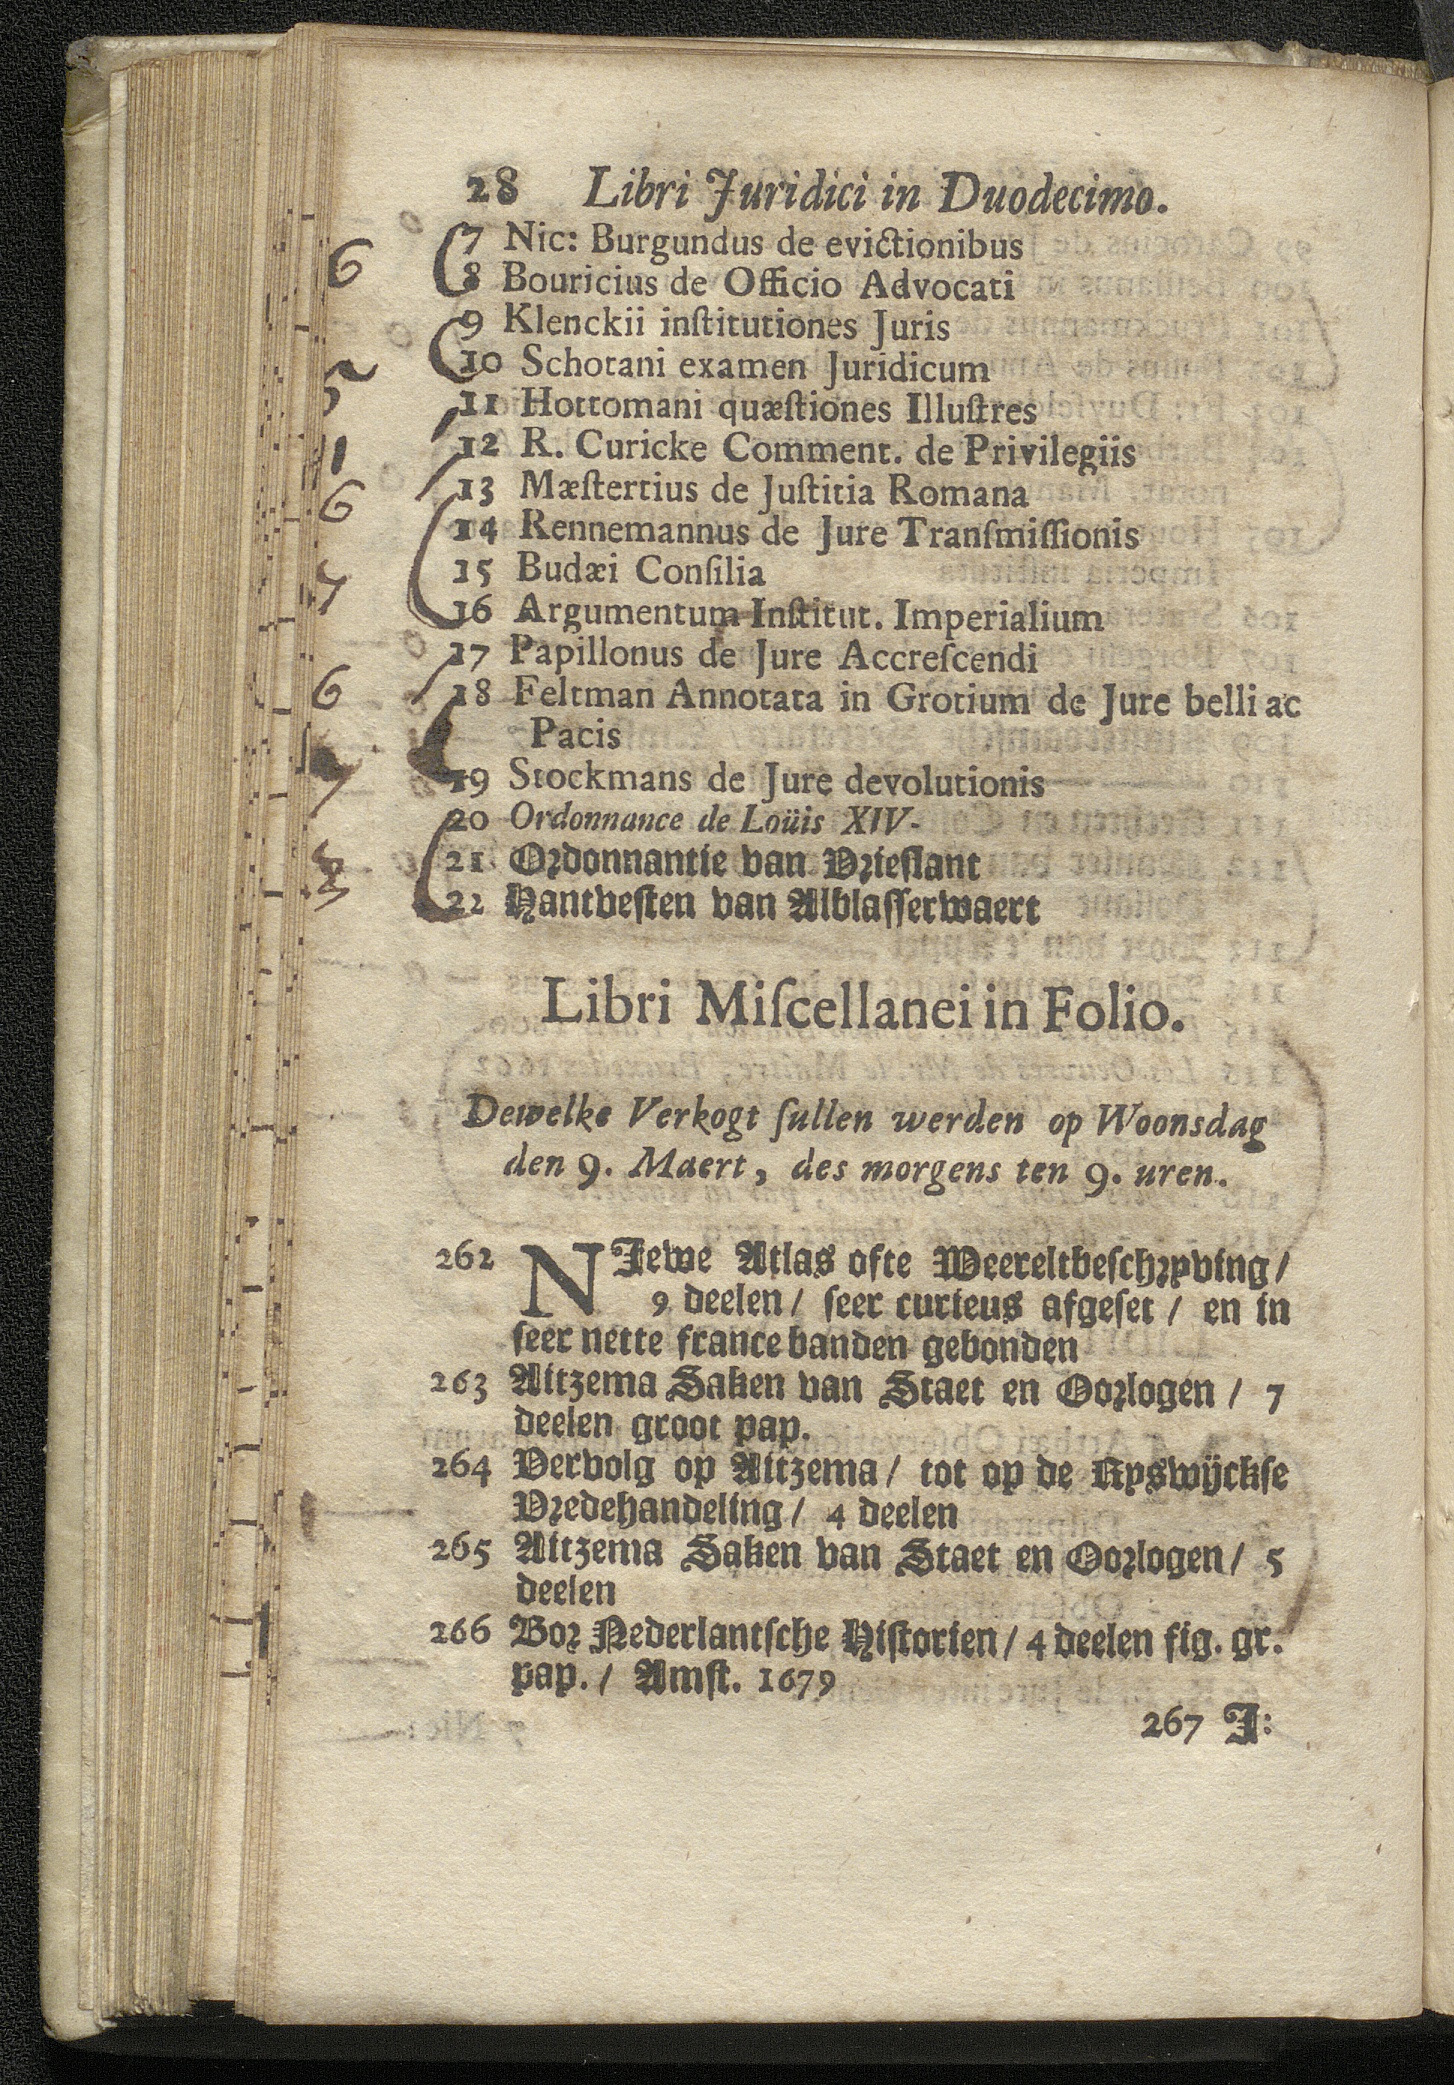 28 Libri Juridici in Duodecimo.
7 Nic: Burgundus de evictionibus
8 Bouricius de Officio Advocati
9 Klenckii inſtitutiones Juris
10 Schotani examen Juridicum
11 Hottomani quæſtiones Illuſtres
12 R. Curicke Comment. de Privilegiis
13 Mæſtertius de Juſtitia Romana
14 Rennemannus de Jure Tranſmiſſionis
15 Budæi Conſilia
16 Argumentum Inſtitut. Imperialium
17 Papillonus de Jure Accreſcendi
18 Feltman Annotata in Grotium de Jure belli ac
Pacis
19 Stockmans de Jure devolutionis
20 Ordonnance de Loüis XIV.
21 Ordonnantie van Vrieſlant
22 Hantveſten van Alblaſſerwaert
Libri Miſcellanei in Folio.
Dewelke Verkogt ſullen werden op Woonsdag
den 9. Maert, des morgens ten 9. uren.
262 NIewe Atlas ofte Weereltbeſchryving /
9 deelen / ſeer curieus afgeſet / en in
ſeer nette france banden gebonden
263 Aitzema Saken van Staet en Oorlogen / 7
deelen groot pap.
264 Vervolg op Aitzema / tot op de Ryswijckſe
Vredehandeling / 4 deelen
265 Aitzema Saken van Staet en Oorlogen / 5
deelen
266 Bor Nederlantſche Hiſtorien / 4 deelen fig. gr.
pap. / Amſt. 1679
267 J: